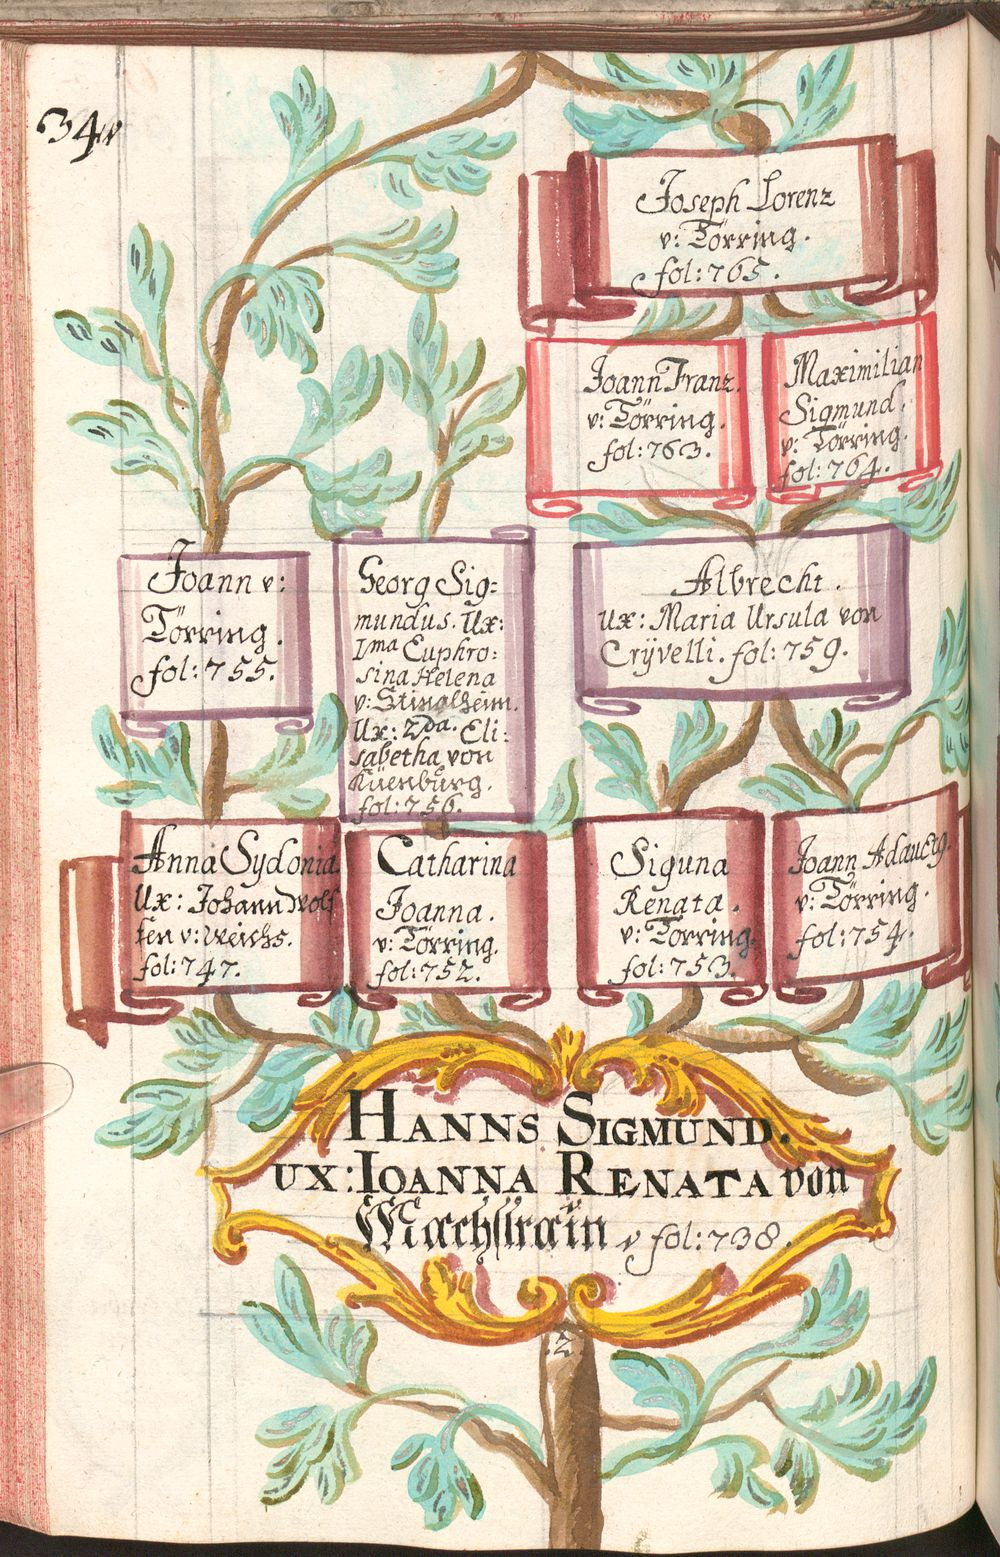 34
Joseph Lorenz
v: Törring.
fol: 765.
Joann Franz.
v: Törring.
fol: 763.
Maximilian
Sigmund.
v: Törring.
fol: 764.
Joann v:
Törring.
fol: 755.
Georg Sig:
mundus. Ux:
Ima Euphro:
sina Helena
v: Stinglheim.
Ux: 2da. Eli:
sabetha von
Küenburg.
fol: 756.
Albrecht.
ux: Maria Ursula von
Crÿvelli. fol: 759.
Anna Sydonia.
Ux: Johann Wolf
fen v: Weichs.
fol: 747.
Catharina
Joanna.
v: Törring.
fol: 752.
Siguna
Renata.
v: Törring.
fol: 753.
Joann Adauctg.
v: Törring.
fol: 754.
HANNS SIGMUND.
UX: IOANNA RENATA von
Machslrain fol: 738.
.2.